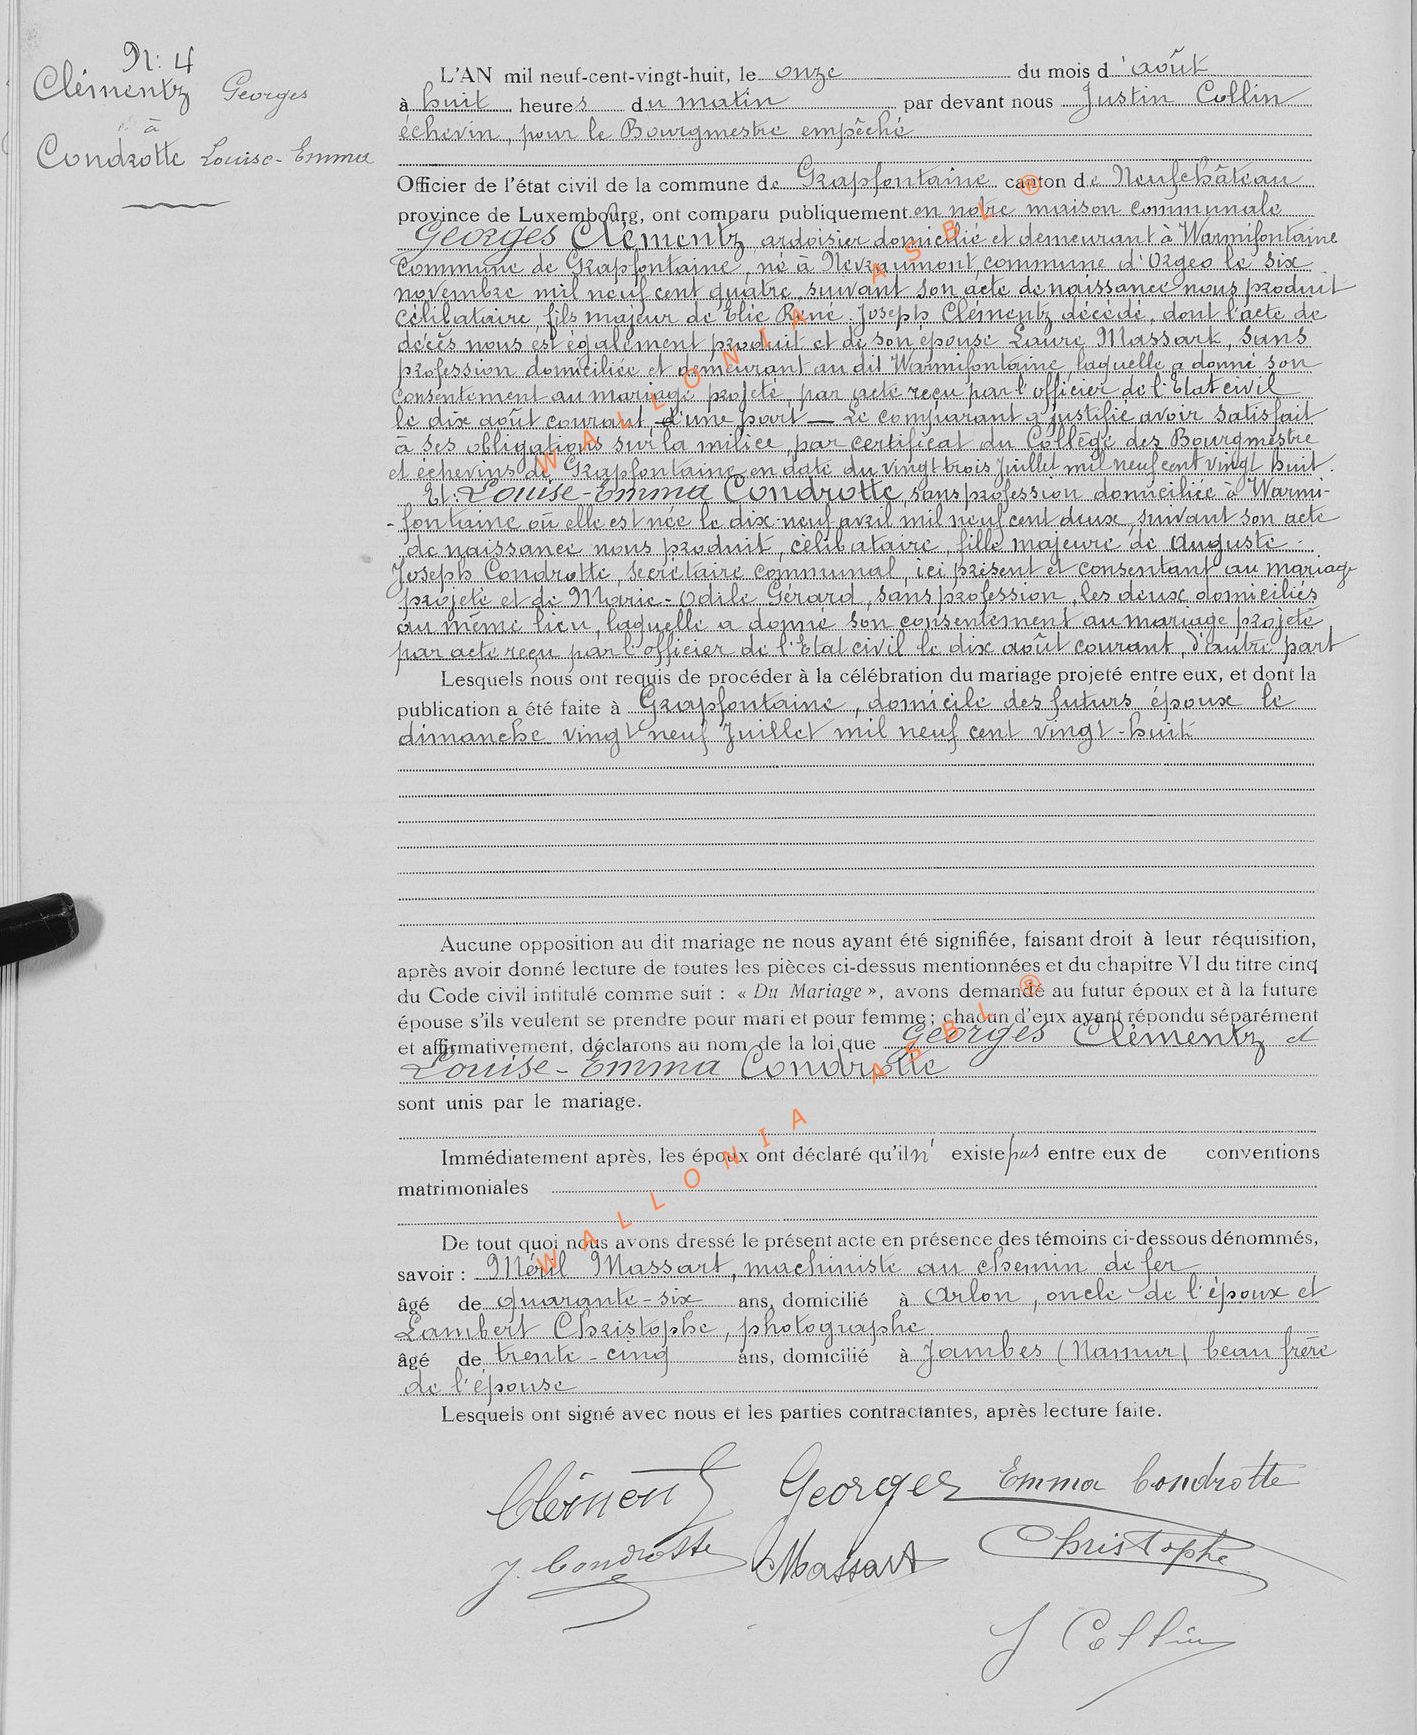 N: 4
Clémentz Georges
à
Condrotte Louise-Emma
L'AN mil neuf-cent-vingt-huit, le onze du mois d'août
à huit heures du matin par devant nous Justin Collin
échevin, pour le Bourgmestre empêché
Officier de l'état civil de la commune de Grapfontaine canton de Neufchâteau
province de Luxembourg, ont comparu publiquement en notre maison communale
Georges Clémentz ardoisier domicilié et demeurant à Warmifontaine
Commune de Grapfontaine, né à Nevraumont, commune d'Orgeo le six
novembre mil neuf cent quatre, suivant son acte de naissance nous produit
célibataire, fils majeur de Elie René Joseph Clémentz décédé, dont l'acte de
décès nous est également produit et de son épouse Laure Massart, sans
profession domiciliée et demeurant au dit Warmifontaine, laquelle a donné son
consentement au mariage projeté, par acte reçu par l'officier de l'Etat civil
le dix août courant d'une part — Le comparant a justifié avoir satisfait
à ses obligations sur la milice, par certificat du Collège des Bourgmestre
et échevins de Grapfontaine en date du vingt trois Juillet mil neuf cent vingt huit.
Et: Louise-Emma Condrotte, sans profession domiciliée à Warmi-
-fontaine où elle est née le dix-neuf avril mil neuf cent deux, suivant son acte
de naissance nous produit, célibataire, fille majeure de Auguste-
Joseph Condrotte, secrétaire communal, ici présent et consentant au mariage
projeté et de Marie-Odile Gérard, sans profession, les deux domiciliés
au même lieu, laquelle a donné son consentement au mariage projeté
par acte reçu par l'officier de l'Etat civil le dix août courant, d'autre part
Lesquels nous ont requis de procéder à la célébration du mariage projeté entre eux, et dont la
publication a été faite à Grapfontaine, domicile des futurs époux le
dimanche vingt neuf Juillet mil neuf cent vingt-huit
Aucune opposition au dit mariage ne nous ayant été signifiée, faisant droit à leur réquisition,
après avoir donné lecture de toutes les pièces ci-dessus mentionnées et du chapitre VI du titre cinq
du Code civil intitulé comme suit : « Du Mariage », avons demandé au futur époux et à la future
épouse s'ils veulent se prendre pour mari et pour femme ; chacun d'eux ayant répondu séparément
et affirmativement, déclarons au nom de la loi que Georges Clémentz et
Louise-Emma Condrotte
sont unis par le mariage.
Immédiatement après, les époux ont déclaré qu'il n' existe pas entre eux de conventions
matrimoniales
De tout quoi nous avons dressé le présent acte en présence des témoins ci-dessous dénommés,
savoir : Massart, machiniste au chemin de fer
âgé de quarante-six ans, domicilié à Arlon, oncle de l'époux et
Lambert Christophe, photographe
âgé de trente-cinq ans, domicilié à Jambes (Namur) beau frère
de l'épouse
Lesquels ont signé avec nous et les parties contractantes, après lecture faite.
Clémentz Georges Emma Condrotte
J. Condrotte Massart Christophe
J Collin
WALLONIA ASBL ®
WALLONIA ASBL ®